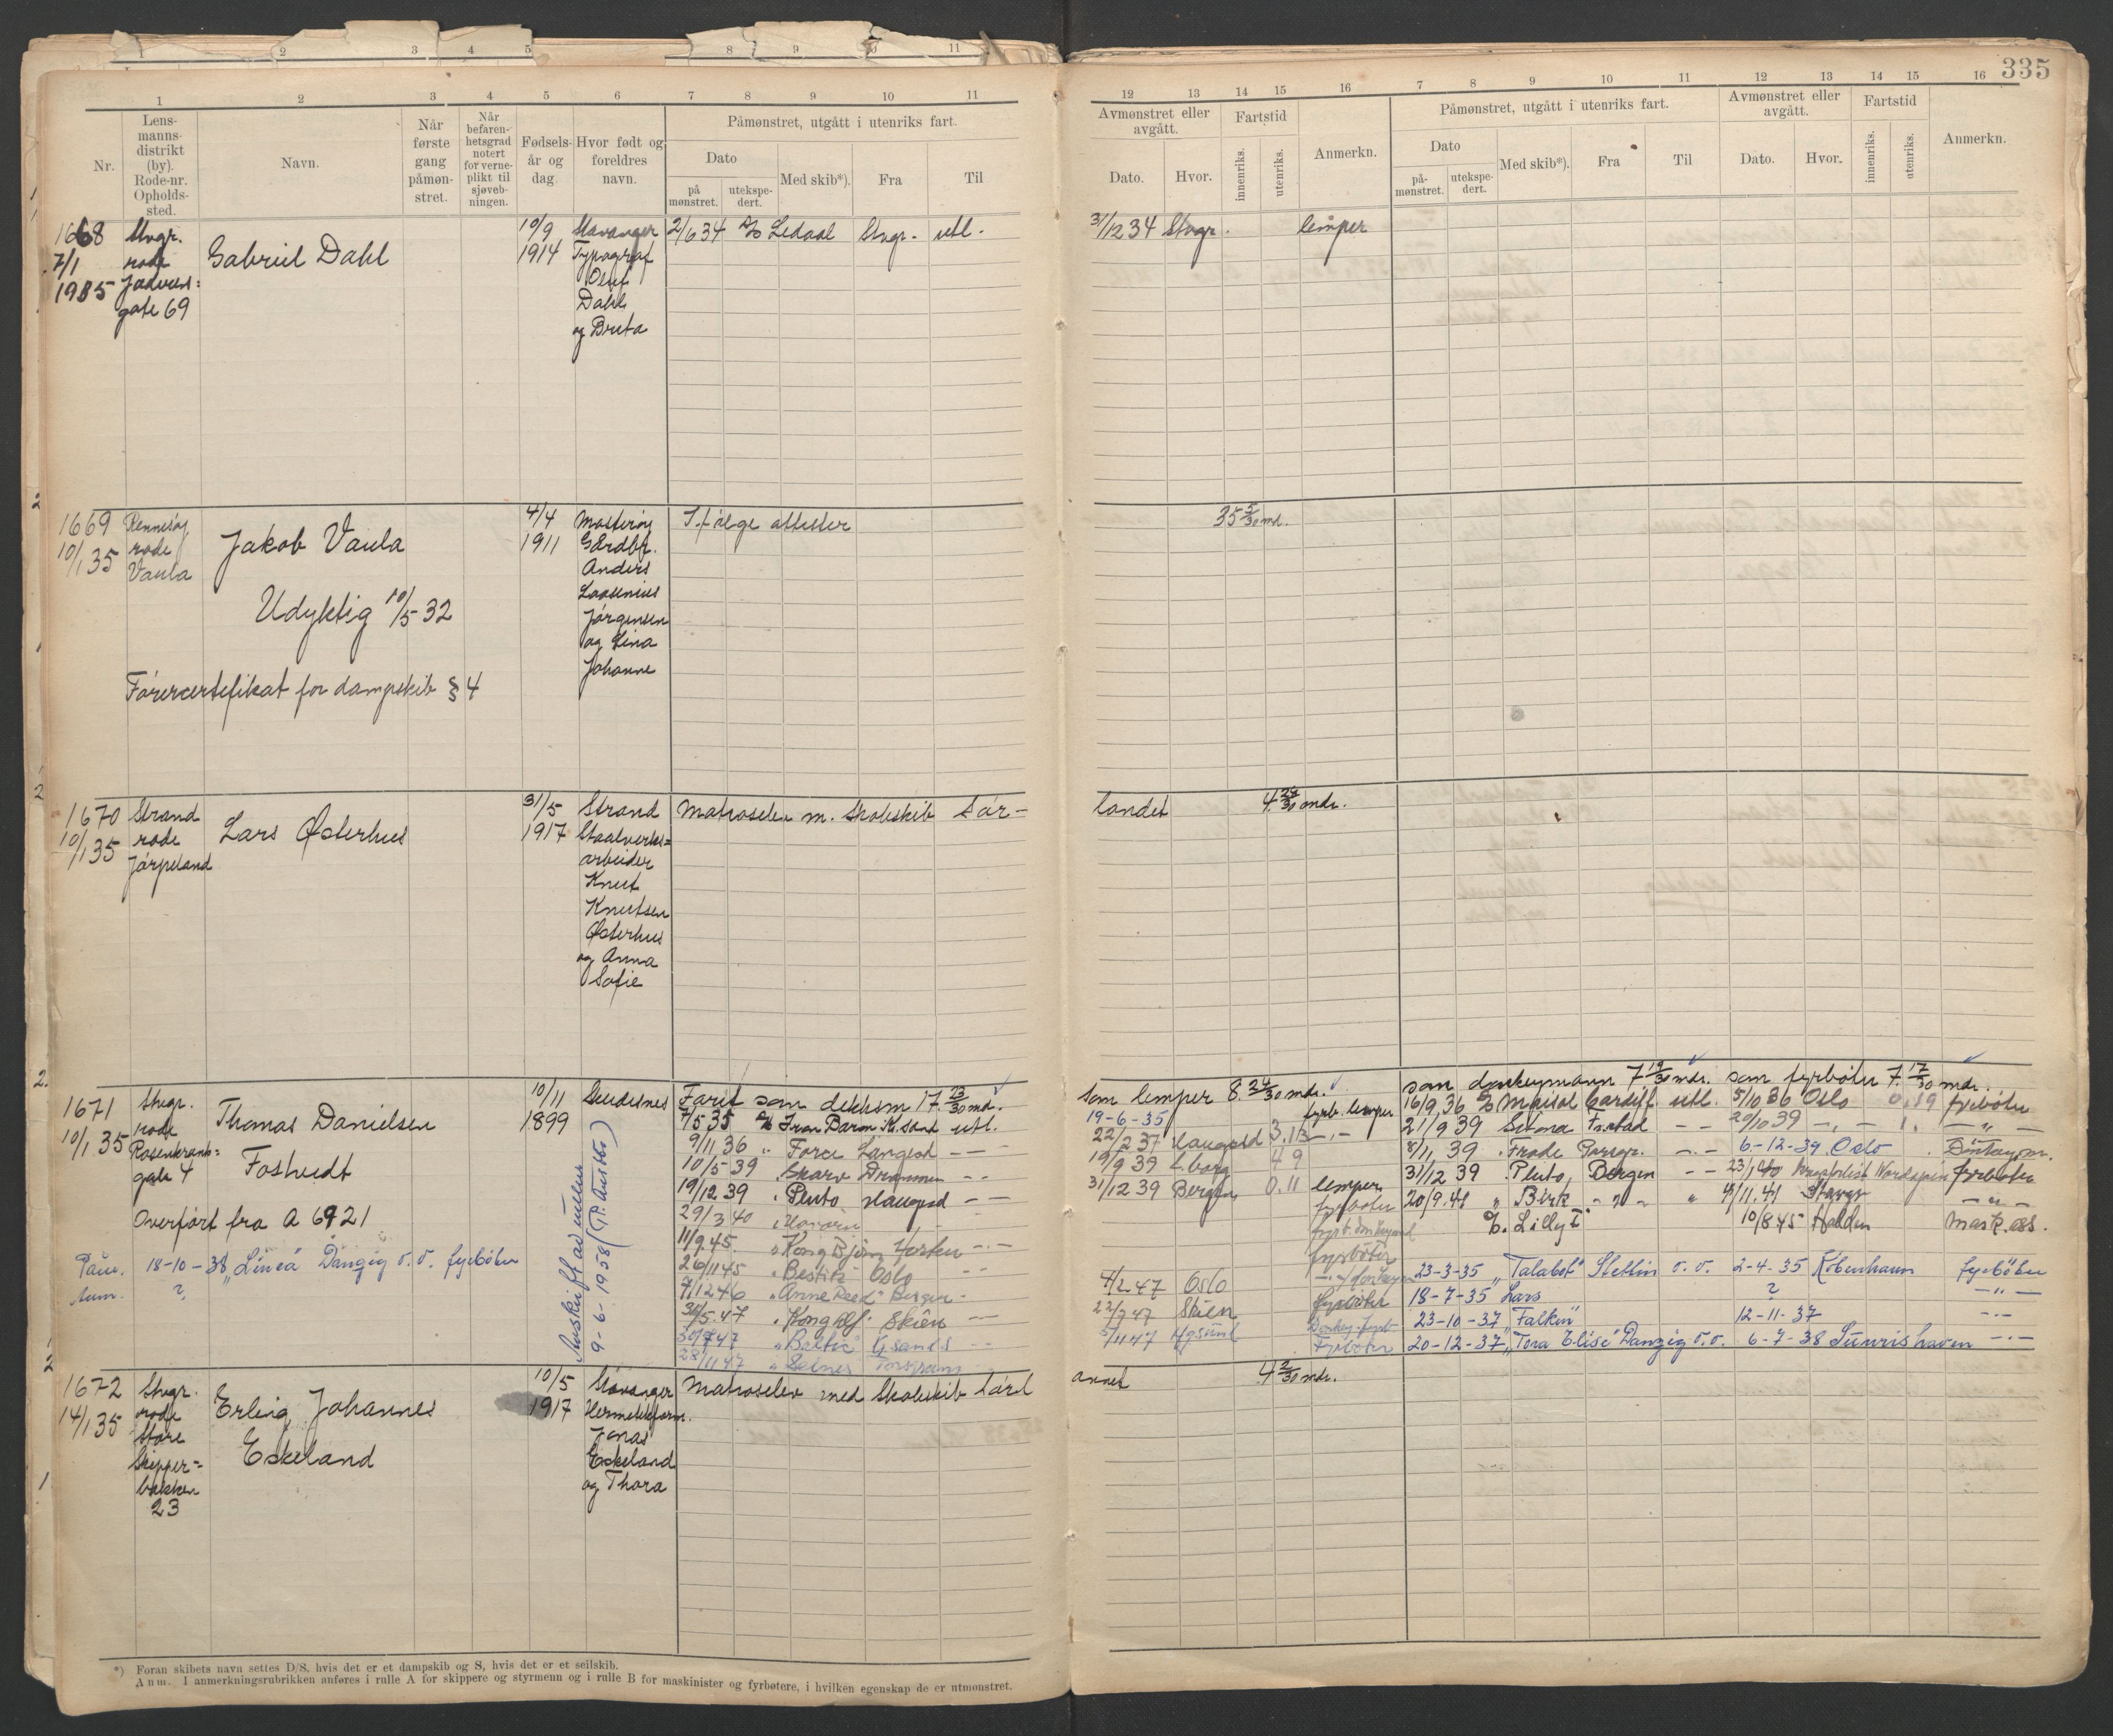 335
1 2 3 4 5 6 7 8 9 10 11
Nr.
Lens-
manns-
distrikt
(by).
Rode-nr.
Opholds-
sted.
Navn.
Når
første
gang
påmøn-
stret.
Når
befaren-
hetsgrad
notert
for verne-
plikt til
sjøveb-
ningen.
Fødsels-
år og
dag.
Hvor født og
foreldres
navn.
Påmønstret, utgått i utenriks fart.
Dato
på
mønstret.
utekspe-
dert.
Med skib*).
Fra
Til
12 13 14 15 16 7 8 9 10 11 12 13 14 15 16
Avmønstret eller
avgått.
Dato.
Hvor.
Fartstid
innenriks.
utenriks.
Anmerkn.
Påmønstret, utgått i utenriks fart.
Dato
på-
mønstret.
utekspe-
dert.
Med skib*).
Fra
Til
Avmønstret eller
avgått.
Dato.
Hvor.
Fartstid
innenriks.
utenriks.
Anmerkn.
1668
7/1
1935
Stvgr.
rode
gate 69
Gabriel Dahl
10/9
1914
Stavanger
Typograf
Oluf
Dahl
og Berta
2/6 34 Ledaal Stvgr. utl.
31/12 34 Stvgr. lemper
1669
10/1 35
Rennesøy
rode
Vaula
Jakob Vaula
Udyktig 10/5 32
Førercertifikat for dampskib § 4
4/4
1911
Mosterøy
Gårdbr.
Anders
Jørgensen
og Lina
Johanne
Ifølge attester
35 5/30 md.
1670
10/1 35
Strand
rode
Jørpeland
Lars Østerhus
31/5
1917
Strand
Staalverks=
arbeider
Knut
Knutsen
Østerhus
og Anna
Sofie
Matroselev m. Skoleskib Sør-
landet
1671
10/1 35
Stvgr.
rode
Rosenkrants=
gate 4
Thomas Danielsen
Fostvedt
Overført fra A 6921
18-10-38 "Linea" Danzig o.o. fyrbøter
?
10/11
1899
Skudesnes
9-6-1958
Farit som dekksm 17 23/30 md.
7/5 35 Iron Baron Kr.sand utl.
9/11 36 " Force Langesd — —
10/5 39 Skarv Drammen - -
19/12 39 " Pluto Haugesd — —
29/3 40
11/9 45. " Kong Bjørn
26/11 45 "Bestik" Oslo
7/12 46 "Anne Reed" Bergen -
31/5. 47 "Kong Alf" Skien
30/9 47 "Baltic" Kr.sands
28/11 47 "Selnes"
Som lemper 8. 24/30 mdr. som donkeymann 7 19/30 mdr. som fyrbøter 7. 17/30 mdr.
19-6-35 fyrb. lemper
22/2 37 Haugesd 3.13 —"—
19/9 39
31/12 39 Bergen 0.11 lemper
fyrbøter
fyrbøter
4/2 47 Oslo
22/9 47 Skien fyrbøter
5/11 47 Fyrbøter
16/9 36 Cardiff utl. 5/10 36 Oslo 0.19 fyrbøter
21/9 39 Selma Fr.stad — — 20/10 39 —"—
8/11 39 " Frode Porsgr. —"— 6-12-39 Oslo
31/12 39 " Pluto, Bergen — — fyrbøter
20/9. 41 " Birk 4/11. 41
Lilly I 10/8 45 Halden Mask.ass.
23-3-35 "Talabot" Stettin o.o. 2-4-35 København fyrbøter
18-7-35 Lars ? —"—
23-10-37 "Falken" 12-11-37 —"—
20-12-37 "Tora Elise" Danzig o.o. 6-7-38 —"—
1672
14/1 35
Stvgr.
rode
Store
Skipper=
bakken
23
Erling Johannes
Eskeland
10/5
1917
Stavanger
Jonas
Eskeland
og Thora
Matroselev med Skoleskib Sørl
annet
4 2/30 mdr.
*) Foran skibets navn settes D/S, hvis det er et dampskib og S, hvis det er et seilskib.
Anm. I anmerkningsrubrikken anføres i rulle A for skippere og styrmenn og i rulle B for maskinister og fyrbøtere, i hvilken egenskap de er utmønstret.